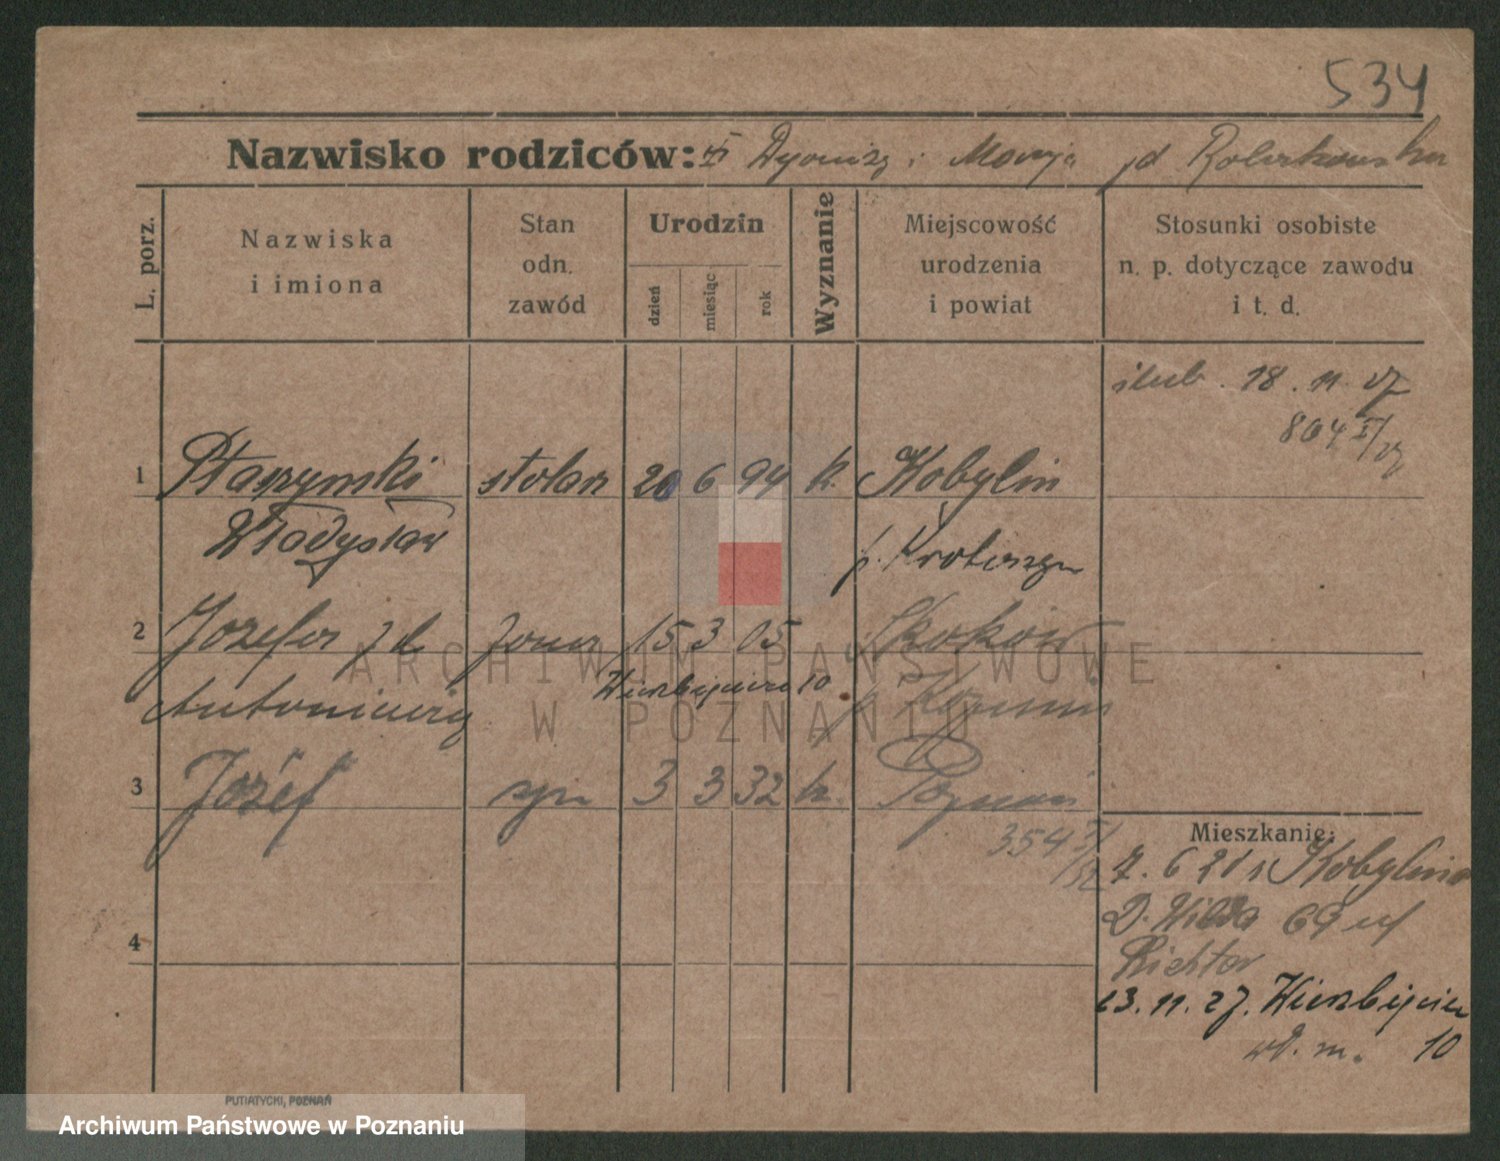 534
Nazwisko rodziców: Dyonizy i Maryja jd
L. porz.
Nazwiska
i imiona
Stan
odn.
zawód
Urodzin
dzień
miesiąc
rok
Wyznanie
Miejscowość
urodzenia
i powiat
Stosunki osobiste
n. p. dotyczące zawodu
i t. d.
ślub. 18. 11. 27
804
1 Ptaszynski stolarz 20 6 94 k. Kobylin
Władysław p. Krotoszyn
2 Józefa żona 15 3 05
Wierzbięcice 10
Antoniewicz
3 Józef syn 3 3 32 k. Poznań
354
32
4
Mieszkanie:
z. 6 21 s Kobylina
D. Wilda 69 u/
Richter
23. 11. 27. Wierzbięcice
wł. m. 10
PUTIATYCKI, POZNAŃ
ARCHIWUM PAŃSTWOWE
W POZNANIU
Archiwum Państwowe w Poznaniu